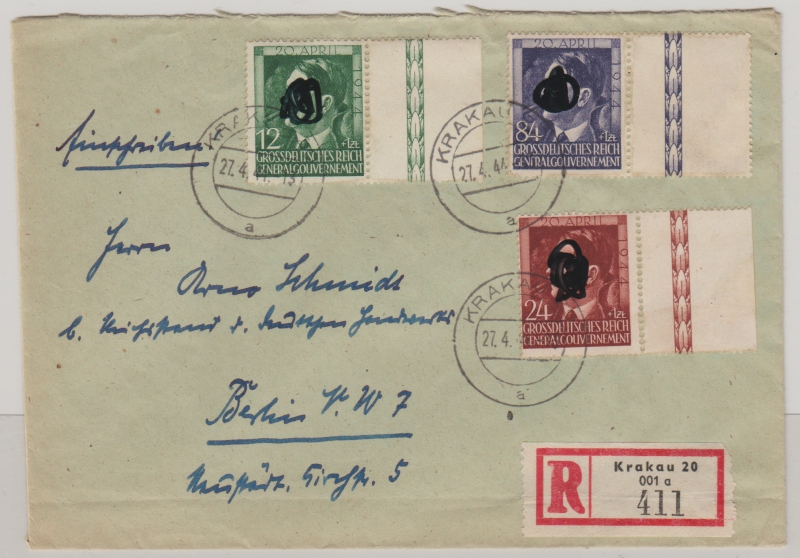 20. APRIL 1944
12 + 1 Zł.
GROSSDEUTSCHES REICH
GENERALGOUVERNEMENT
20. APRIL 1944
84 + 1 Zł.
GROSSDEUTSCHES REICH
GENERALGOUVERNEMENT
KRAKAU
27.4.44
a
KRAKAU
27.4.44
a
Einschreiben
20. APRIL 1944
24 + 1 Zł.
GROSSDEUTSCHES REICH
GENERALGOUVERNEMENT
KRAKAU
27.4.
a
Herrn
Arno Schmidt
b. Reichsstand d. deutschen Handwerks
Berlin N. W 7
Neustädt. Kirchstr. 5
R
Krakau 20
001 a
411